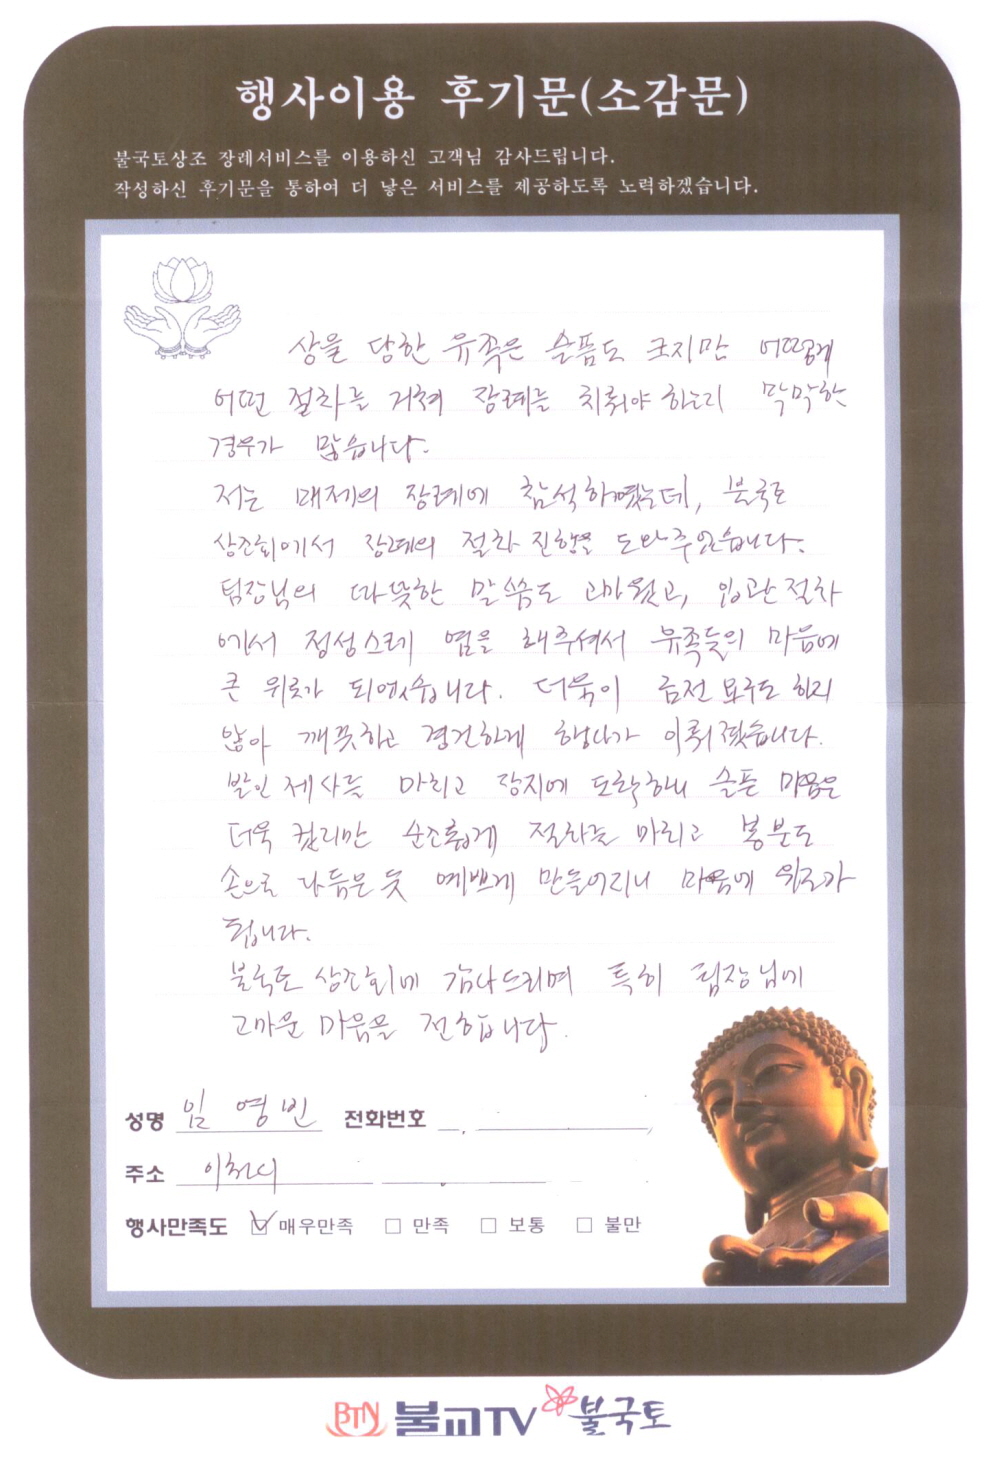 행사이용 후기문(소감문)
불국토상조 장례서비스를 이용하신 고객님 감사드립니다.
작성하신 후기문을 통하여 더 낳은 서비스를 제공하도록 노력하겠습니다.
상을 당한 유족은 슬픔도 크지만 어떻게
어떤 절차를 거쳐 장례를 치뤄야 하는지 막막한
경우가 많습니다.
저는 매제의 장례에 참석하였는데, 불국토
상조회에서 장례의 절차 진행을 도와주었습니다.
팀장님의 따뜻한 말씀도 고마웠고, 입관절차
에서 정성스레 염을 해주셔서 유족들의 마음에
큰 위로가 되었습니다. 더욱이 금전 요구도 하지
않아 깨끗하고 경건하게 행사가 이뤄졌습니다.
발인 제사를 마치고 장지에 도착하니 슬픈 마음은
더욱 컸지만 순조롭게 절차를 마치고 봉분도
손으로 다듬은 듯 예쁘게 만들어지니 마음에 위로가
됩니다.
불국토 상조회에 감사드리며 특히 팀장님에
고마운 마음을 전합니다.
성명 임영빈 전화번호
주소 이천시
행사만족도 ☑ 매우만족 □ 만족 □ 보통 □ 불만
BTN 불교TV 불국토